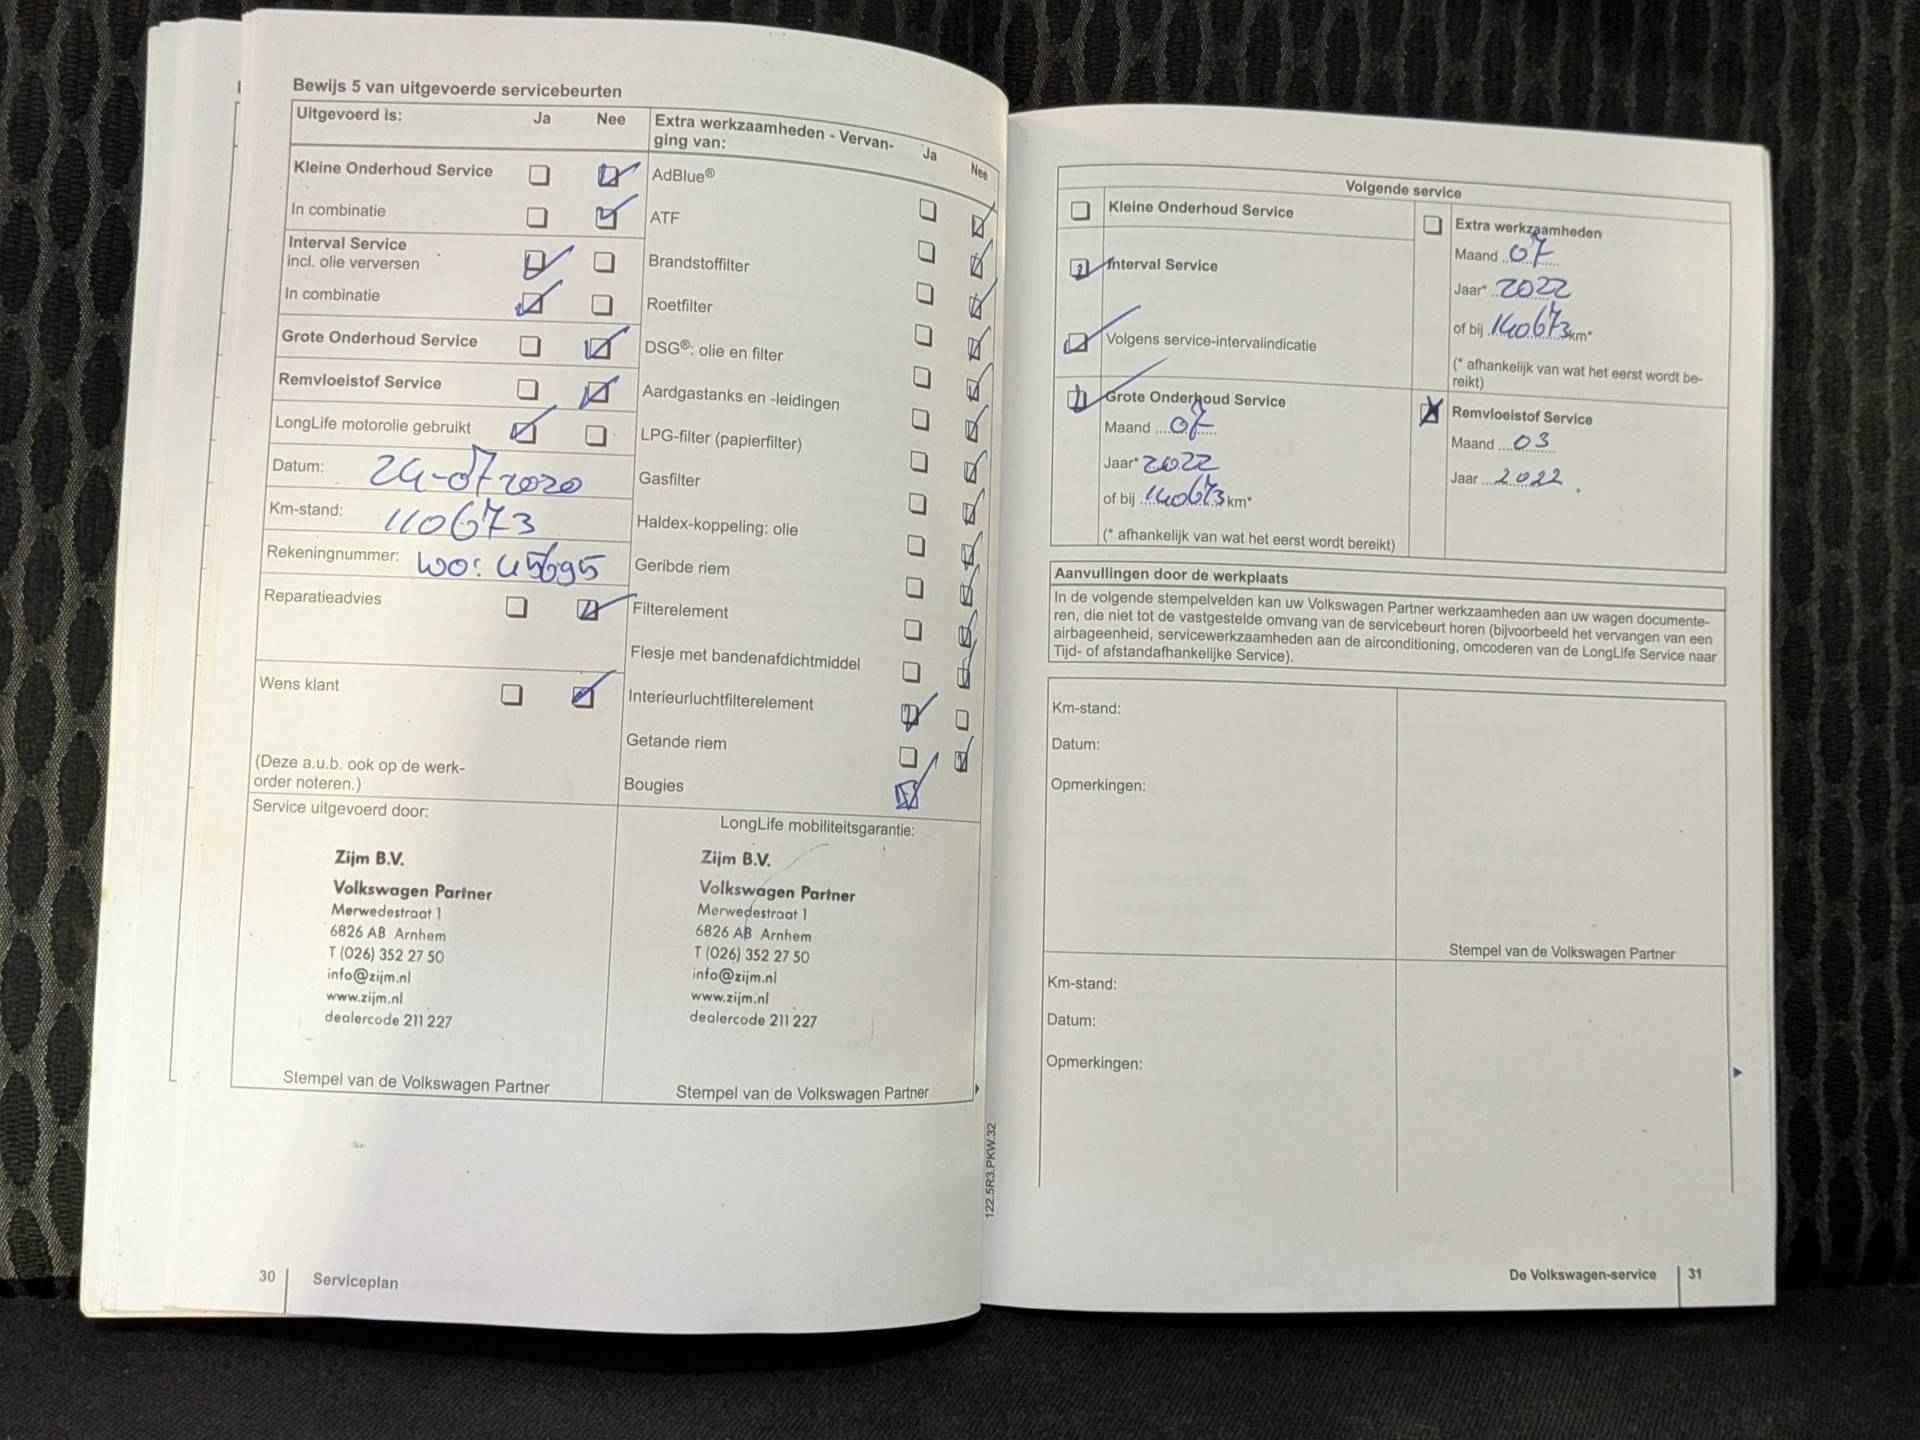 Bewijs 5 van uitgevoerde servicebeurten
Uitgevoerd is: Ja Nee
Kleine Onderhoud Service
In combinatie
Interval Service
incl. olie verversen
In combinatie
Grote Onderhoud Service
Remvloeistof Service
LongLife motorolie gebruikt
Datum: 24-07 2020
Km-stand: 110673
Rekeningnummer: WO: 45695
Reparatieadvies
Wens klant
(Deze a.u.b. ook op de werk-
order noteren.)
Extra werkzaamheden - Vervan-
ging van: Ja Nee
AdBlue®
ATF
Brandstoffilter
Roetfilter
DSG®: olie en filter
Aardgastanks en -leidingen
LPG-filter (papierfilter)
Gasfilter
Haldex-koppeling: olie
Geribde riem
Filterelement
Flesje met bandenafdichtmiddel
Interieurluchtfilterelement
Getande riem
Bougies
Service uitgevoerd door:
Zijm B.V.
Volkswagen Partner
Merwedestraat 1
6826 AB Arnhem
T (026) 352 27 50
info@zijm.nl
www.zijm.nl
dealercode 211 227
Stempel van de Volkswagen Partner
LongLife mobiliteitsgarantie:
Zijm B.V.
Volkswagen Partner
Merwedestraat 1
6826 AB Arnhem
T (026) 352 27 50
info@zijm.nl
www.zijm.nl
dealercode 211 227
Stempel van de Volkswagen Partner
122.5R3.PKW.32
30 Serviceplan
Volgende service
Kleine Onderhoud Service
Interval Service
Volgens service-intervalindicatie
Extra werkzaamheden
Maand 07
Jaar* 2022
of bij 140673 km*
(* afhankelijk van wat het eerst wordt be-
reikt)
Grote Onderhoud Service
Maand 07
Jaar* 2022
of bij 140673 km*
(* afhankelijk van wat het eerst wordt bereikt)
Remvloeistof Service
Maand 03
Jaar 2022.
Aanvullingen door de werkplaats
In de volgende stempelvelden kan uw Volkswagen Partner werkzaamheden aan uw wagen documente-
ren, die niet tot de vastgestelde omvang van de servicebeurt horen (bijvoorbeeld het vervangen van een
airbageenheid, servicewerkzaamheden aan de airconditioning, omcoderen van de LongLife Service naar
Tijd- of afstandafhankelijke Service).
Km-stand:
Datum:
Opmerkingen:
Stempel van de Volkswagen Partner
Km-stand:
Datum:
Opmerkingen:
De Volkswagen-service 31